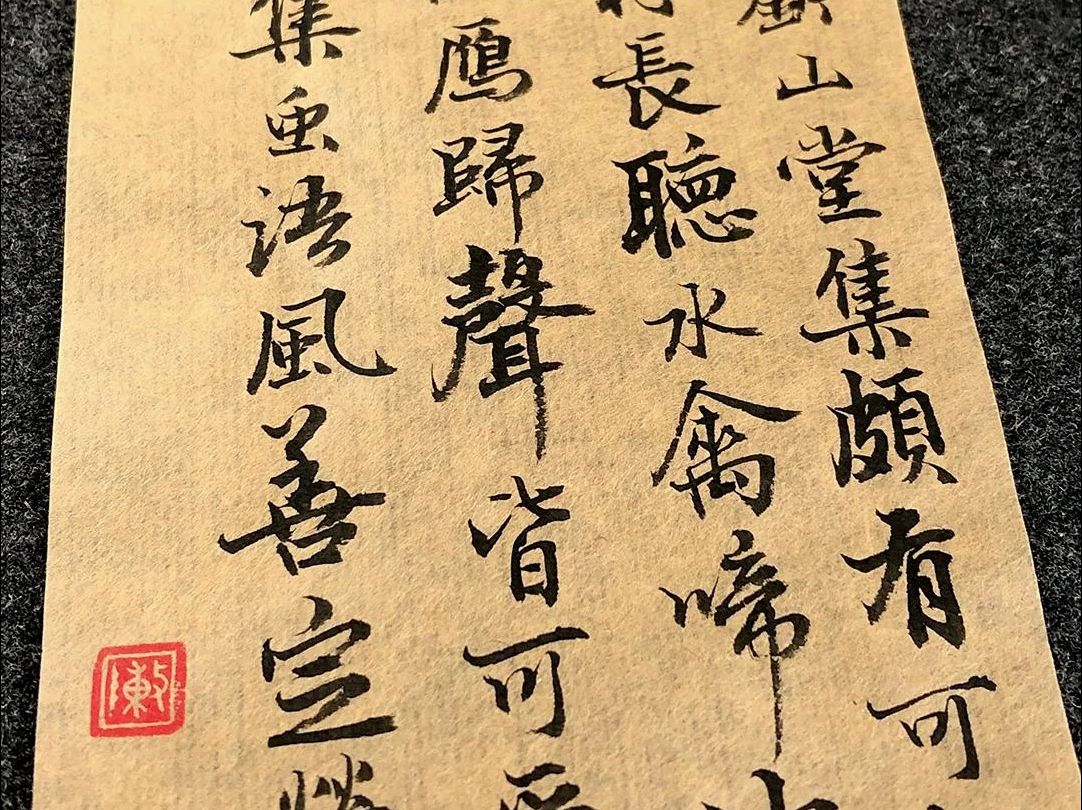 山堂集頗有可
長聽水禽啼
鴈歸聲皆可
集虫語風善定